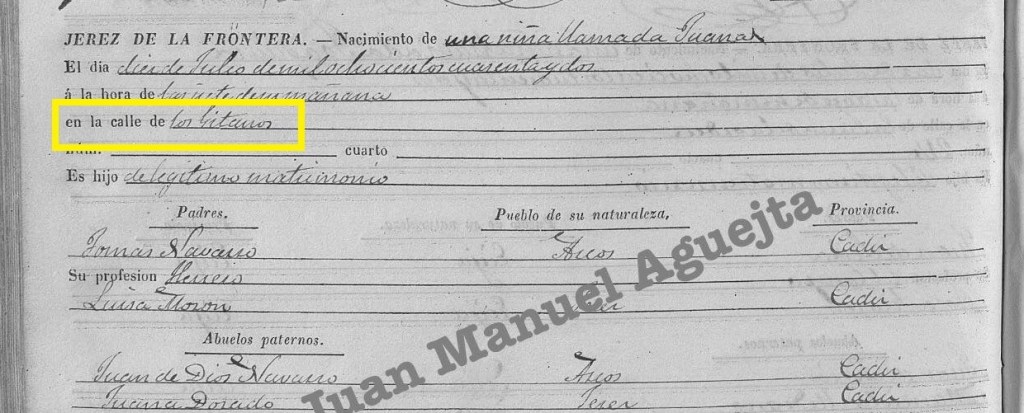 JEREZ DE LA FRONTERA. — Nacimiento de una niña llamada Juana
El dia diez de Julio de mil ochocientos cuarenta y dos
á la hora de las siete de su mañana
en la calle de los Gitanos
Núm. cuarto
Es hijo de legitimo matrimonio
Padres. Pueblo de su naturaleza, Provincia.
Tomas Navarro Arcos Cadiz
Su profesion Herrero
Luisa Moron Jerez Cadiz
Abuelos paternos.
Juan de Dios Navarro Arcos Cadiz
Juana Dorado Jerez Cadiz
Juan Manuel Aguejta